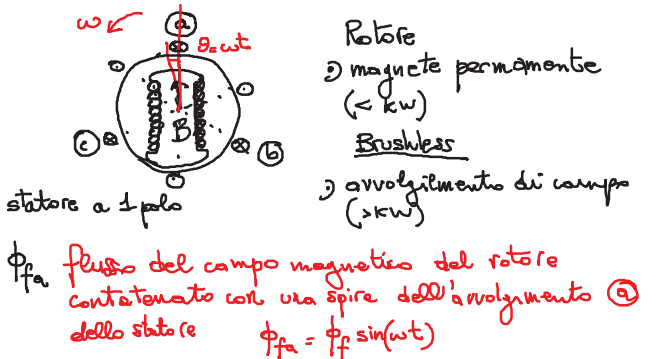 ω
a
θ=ωt
B
c
b
statore a 1 polo
Rotore
•) magnete permanente
(< kW)
Brushless
•) avvolgilmento di campo
(>kW)
ϕfa flusso del campo magnetico del rotore
contatenato con una spire dell'avvolgimento a
dello statore ϕfa = ϕf sin(ωt)